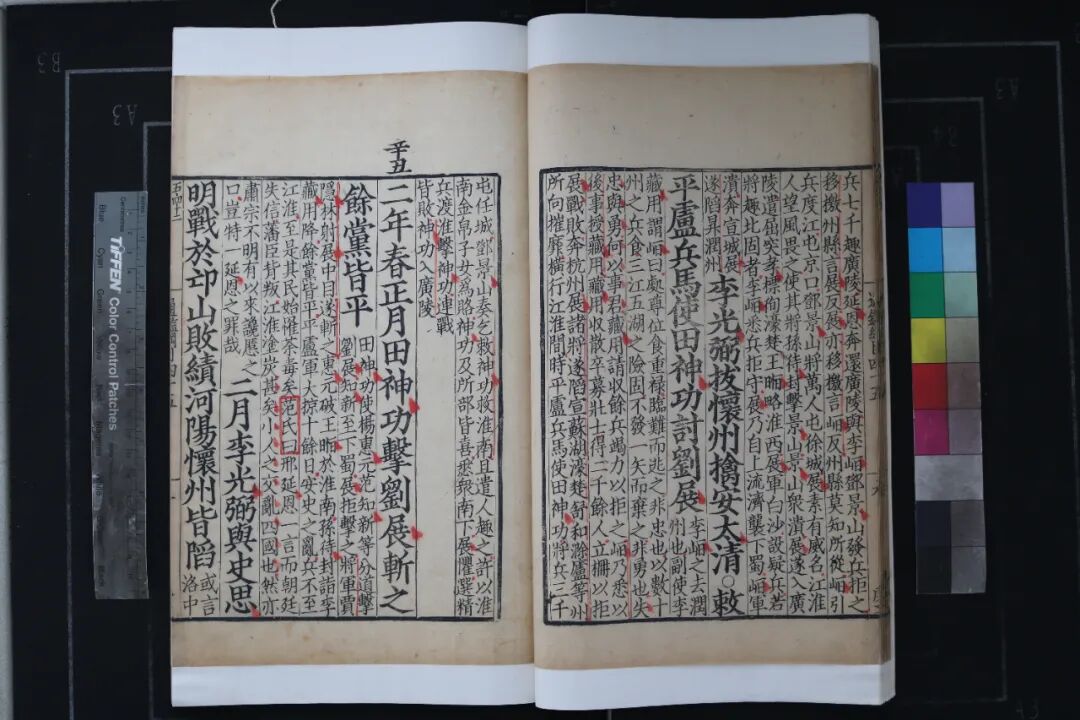 兵七千趣廣陵延恩奔還廣陵與李峘鄧景山發兵拒之
移檄州縣言展反展亦移檄言峘反州縣莫知所從峘引
兵度江屯京口鄧景山將萬人屯徐城展素有威名江淮
人望風畏之使其將孫待封擊景山景山衆潰展遂入廣
陵遣屈突孝摽徇濠楚王暅略淮西展軍白沙設疑兵若
將趣北固者李峘悉兵拒守展乃自上流濟襲下蜀峘軍
潰奔宣城展
遂陷昇潤州
李光弼拔懷州擒安太清○敕
平盧兵馬使田神功討劉展
李峘之去潤
州也副使李
藏用謂峘曰處尊位食重祿臨難而逃之非忠也以數十
州之兵食三江五湖之險固不發一矢而棄之非勇也失
忠與勇何以事君藏用請收餘兵竭力以拒之峘乃悉以
後事授藏用藏用收散卒募壯士得二千餘人立柵以拒
展戰敗奔杭州展諸將遂陷宣蘇湖濠楚舒和滁廬等州
所向摧靡橫行江淮間時平盧兵馬使田神功將兵三千
屯任城鄧景山奏乞敕神功救淮南且遣人趣之許以淮
南金帛子女爲賂神功及所部皆喜悉衆南下展懼選精
兵渡淮擊神功連戰
皆敗神功入廣陵
辛丑
二年春正月田神功擊劉展斬之
餘黨皆平
田神功使楊惠元范知新等分道擊
劉展知新至下蜀展拒擊之將軍賈
隱林射展中目遂斬之惠元破王暅於淮南孫待封詣李
藏用降餘黨皆平平盧軍大掠十餘日安史之亂兵不至
江淮至是其民始罹荼毒矣范氏曰邢延恩一言而朝廷
失信藩臣背叛江淮塗炭甚矣小人之交亂四國也然亦
肅宗不明有以來讒慝之
口豈特延恩之罪哉
二月李光弼與史思
明戰於邙山敗績河陽懷州皆陷
或言
洛中
TIFFEN Color Control Patches